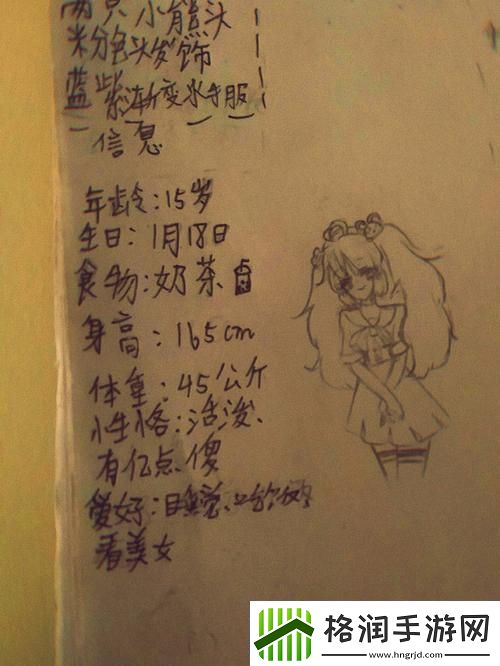 两只小熊头
粉色头发饰
蓝紫渐变水手服
信息
年龄:15岁
生日:1月18日
食物:奶茶
身高:165cm
体重:45公斤
性格:活泼、
有亿点傻
爱好:睡觉、
看美女
格润手游网
www.hngrjd.com